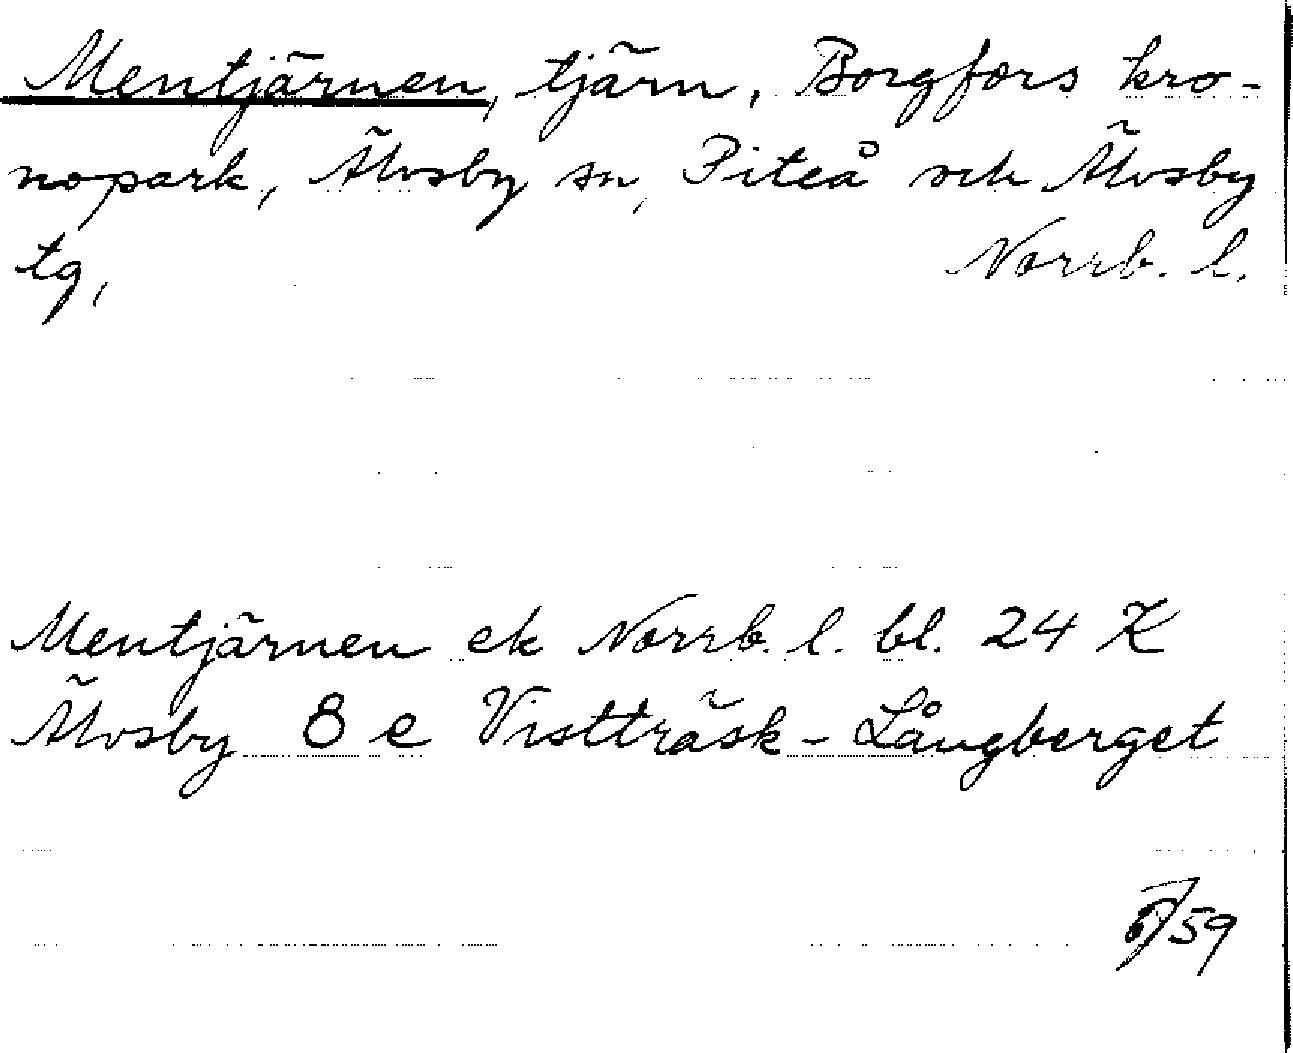 Mentjärnen, tjärn, Borgfors kro-
nopark, Älvsby sn, Piteå och Älvsby
tg,
Norrb. l.
Mentjärnen ek Norrb. l. bl. 24 K
Älvsby 8 e Vistträsk - Långberget
/59